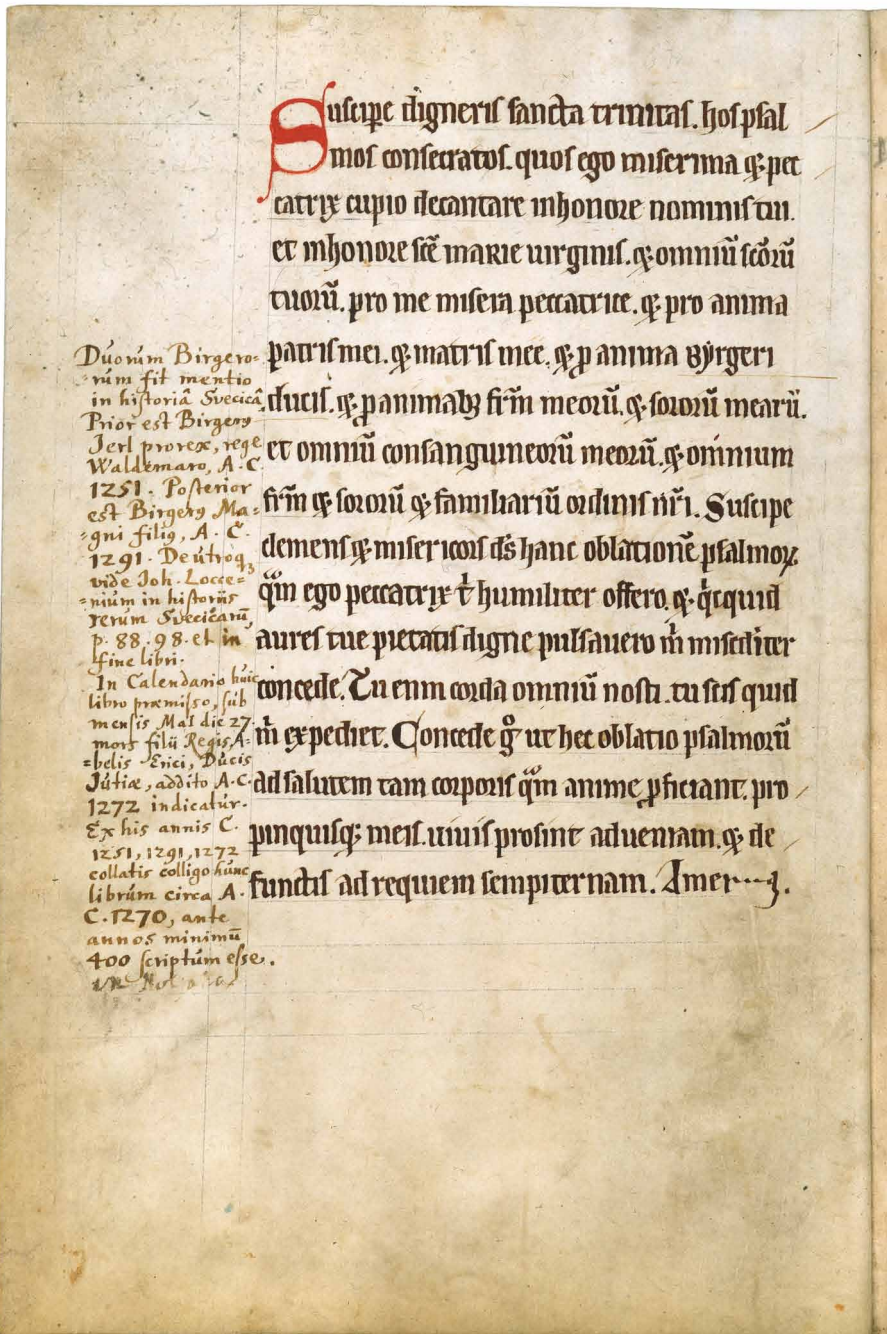 Suscipe digneris sancta trinitas. hos psal
mos consecratos. quos ego miserima ⁊ pec
catrix cupio decantare inhonore nominis tui.
et inhonore sc̄e marie uirginis. ⁊ omniū sc̄orū
tuorū. pro me misera peccatrice. ⁊ pro anima
patris mei. ⁊ matris mee. ⁊ ꝓ anima Byrgeri
ducis. ⁊ ꝓ animabꝫ fr̄m meorū. ⁊ sororū mearū.
et omniū consanguineorū meorū. ⁊ omnium
fr̄m ⁊ sororū ⁊ familiariū ordinis nr̄i. Suscipe
clemens ⁊ misericors ds̄ hanc oblationē psalmoꝝ
qͣm ego peccatrix t̄ humiliter offero. ⁊ qͥcquid
aures tue pietatis digne pulsauero m̄ misedͥter
concede. Tu enim corda omniū nosti. tu scis quid
m̄ expediet. Concede gͦ ut hec oblatio psalmorū
ad salutem tam corporis qͣm anime ꝓficiant. pro
pinquisqꝫ meis. uiuis prosint adueniam. ⁊ de
functis ad requiem sempiternam. Amen.
Duorum Birgero=
rum fit mentio
in historiâ Svecicâ.
Prior est Birgerꝰ
Jerl prorex, rege
Waldemaro, A. C.
1251. Posterior
est Birgerꝰ Ma=
gni filiꝰ, A. C.
1291. De utroqꝫ
vide Joh. Locce=
nium in historiis
rerum Svecicarū,
p. 88. 98. et in
fine libri.
In Calendario huic
libro præmisso, sub
mensis MaI die 27.
mors filii Regis A=
belis Erici, Ducis
Jutiæ, addito A. C.
1272 indicatur.
Ex his annis C.
1251, 1291, 1272
collatis colligo hunc
librum circa A.
C. 1270, ante
annos minimū
400 scriptum esse.